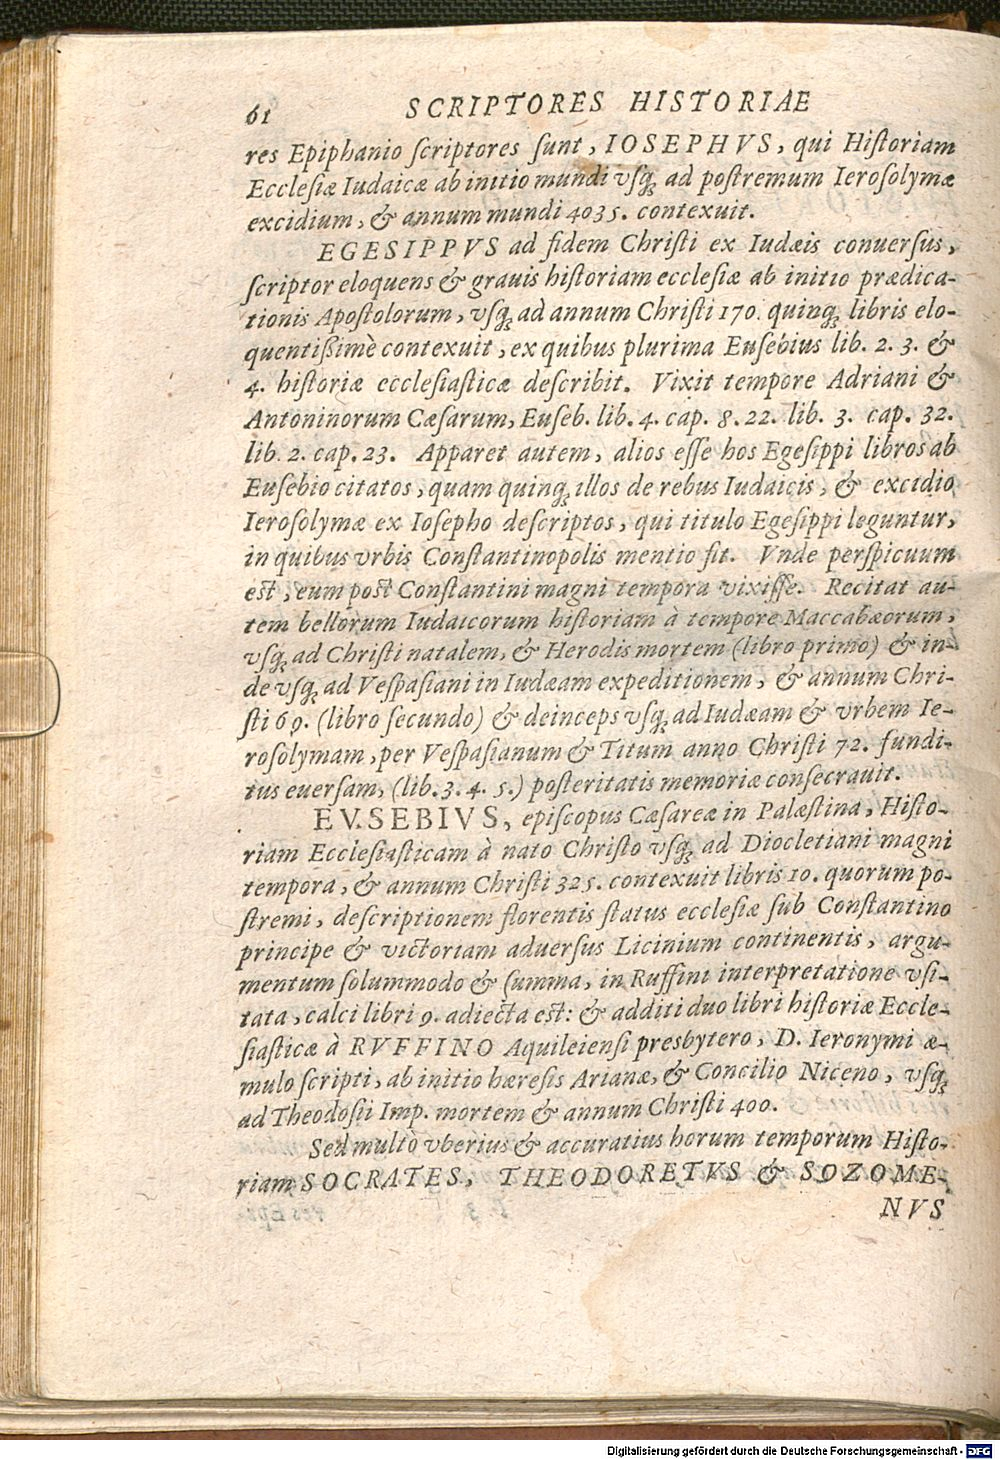 61 SCRIPTORES HISTORIAE
res Epiphanio ſcriptores ſunt, IOSEPHVS, qui Hiſtoriam
Eccleſiæ Iudaicæ ab initio mundi vſq; ad poſtremum Ieroſolymæ
excidium, & annum mundi 4035. contexuit.
EGESIPPVS ad fidem Chriſti ex Iudæis conuerſus,
ſcriptor eloquens & grauis hiſtoriam eccleſiæ ab initio prædica-
tionis Apoſtolorum, vſq; ad annum Chriſti 170. quinq; libris elo-
quentißimè contexuit, ex quibus plurima Euſebius lib. 2. 3. &
4. hiſtoriæ eccleſiaſticæ deſcribit. Vixit tempore Adriani &
Antoninorum Cæſarum, Euſeb. lib. 4. cap. 8. 22. lib. 3. cap. 32.
lib. 2. cap. 23. Apparet autem, alios eſſe hos Egeſippi libros ab
Euſebio citatos, quam quinq; illos de rebus Iudaicis, & excidio
Ieroſolymæ ex Ioſepho deſcriptos, qui titulo Egeſippi leguntur,
in quibus vrbis Conſtantinopolis mentio fit. Vnde perſpicuum
eſt, eum poſt Conſtantini magni tempora vixiſſe. Recitat au-
tem bellorum Iudaicorum hiſtoriam à tempore Maccabæorum,
vſq; ad Chriſti natalem, & Herodis mortem (libro primo) & in-
de vſq; ad Veſpaſiani in Iudæam expeditionem, & annum Chri-
ſti 69. (libro ſecundo) & deinceps vſq; ad Iudæam & vrbem Ie-
roſolymam, per Veſpaſianum & Titum anno Chriſti 72. fundi-
tus euerſam, (lib. 3. 4. 5.) poſteritatis memoriæ conſecrauit.
EVSEBIVS, epiſcopus Cæſareæ in Palæſtina, Hiſto-
riam Eccleſiaſticam à nato Chriſto vſq; ad Diocletiani magni
tempora, & annum Chriſti 325. contexuit libris 10. quorum po-
ſtremi, deſcriptionem florentis ſtatus eccleſiæ ſub Conſtantino
principe & victoriam aduerſus Licinium continentis, argu-
mentum ſolummodo & ſumma, in Ruffini interpretatione vſi-
tata, calci libri 9. adiecta eſt: & additi duo libri hiſtoriæ Eccle-
ſiaſticæ à RVFFINO Aquileienſi presbytero, D. Ieronymi æ-
mulo ſcripti, ab initio hæreſis Arianæ, & Concilio Niceno, vſq;
ad Theodoſii Imp. mortem & annum Chriſti 400.
Sed multò vberius & accuratius horum temporum Hiſto-
riam SOCRATES, THEODORETVS & SOZOME-
NVS
Digitalisierung gefördert durch die Deutsche Forschungsgemeinschaft - DFG